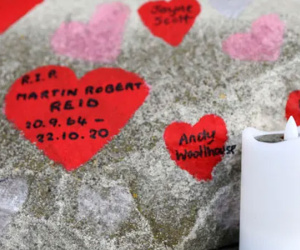 Jayne
Scott
R.I.P.
MARTIN ROBERT
REID
20.9.64 -
22.10.20
Andy
Woolhouse